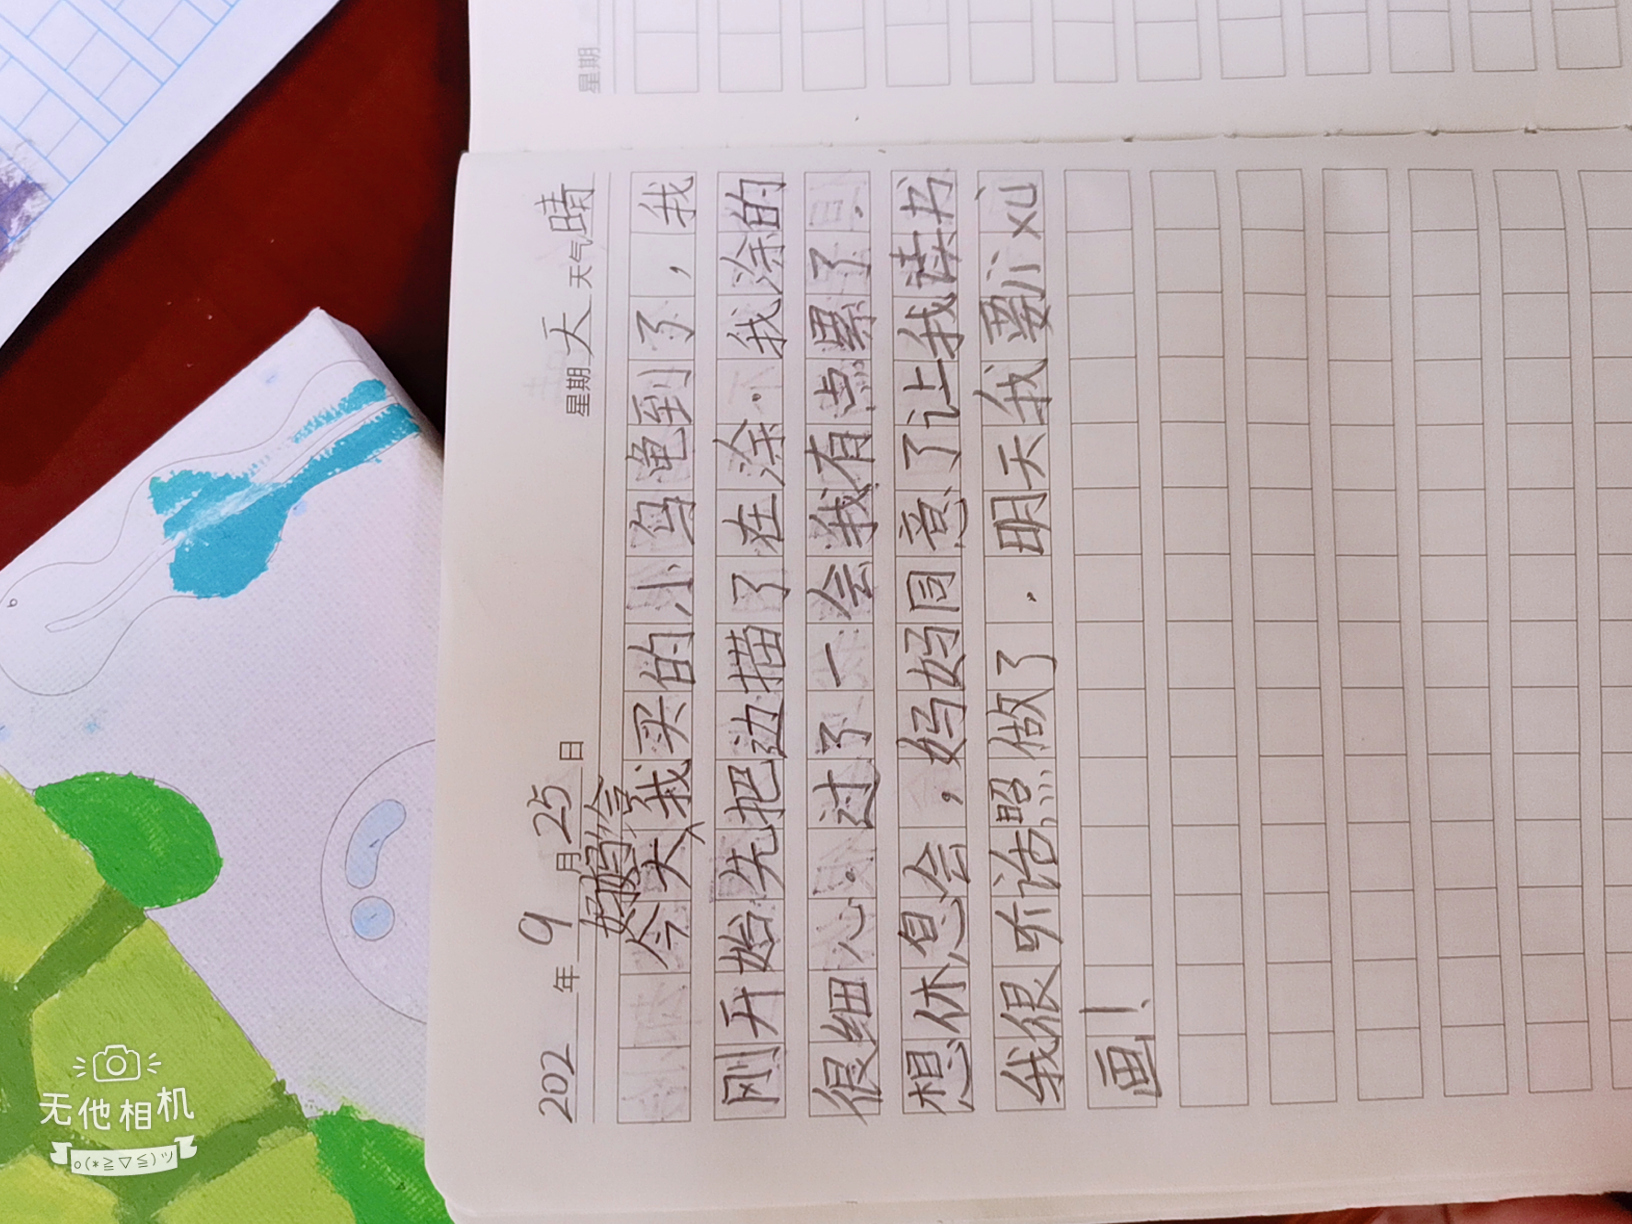 202 年 9 月 25 日 星期 天 天气 晴
妈妈给
今天我买的小乌龟到了，我
刚开始先把边描了在涂.我涂的
很细心.过了一会我有点累了.
想休息会，妈妈同意了让我读书
我很听话照做了.明天我要jì xù
画!
星期
无他相机
o(*≧▽≦)ツ